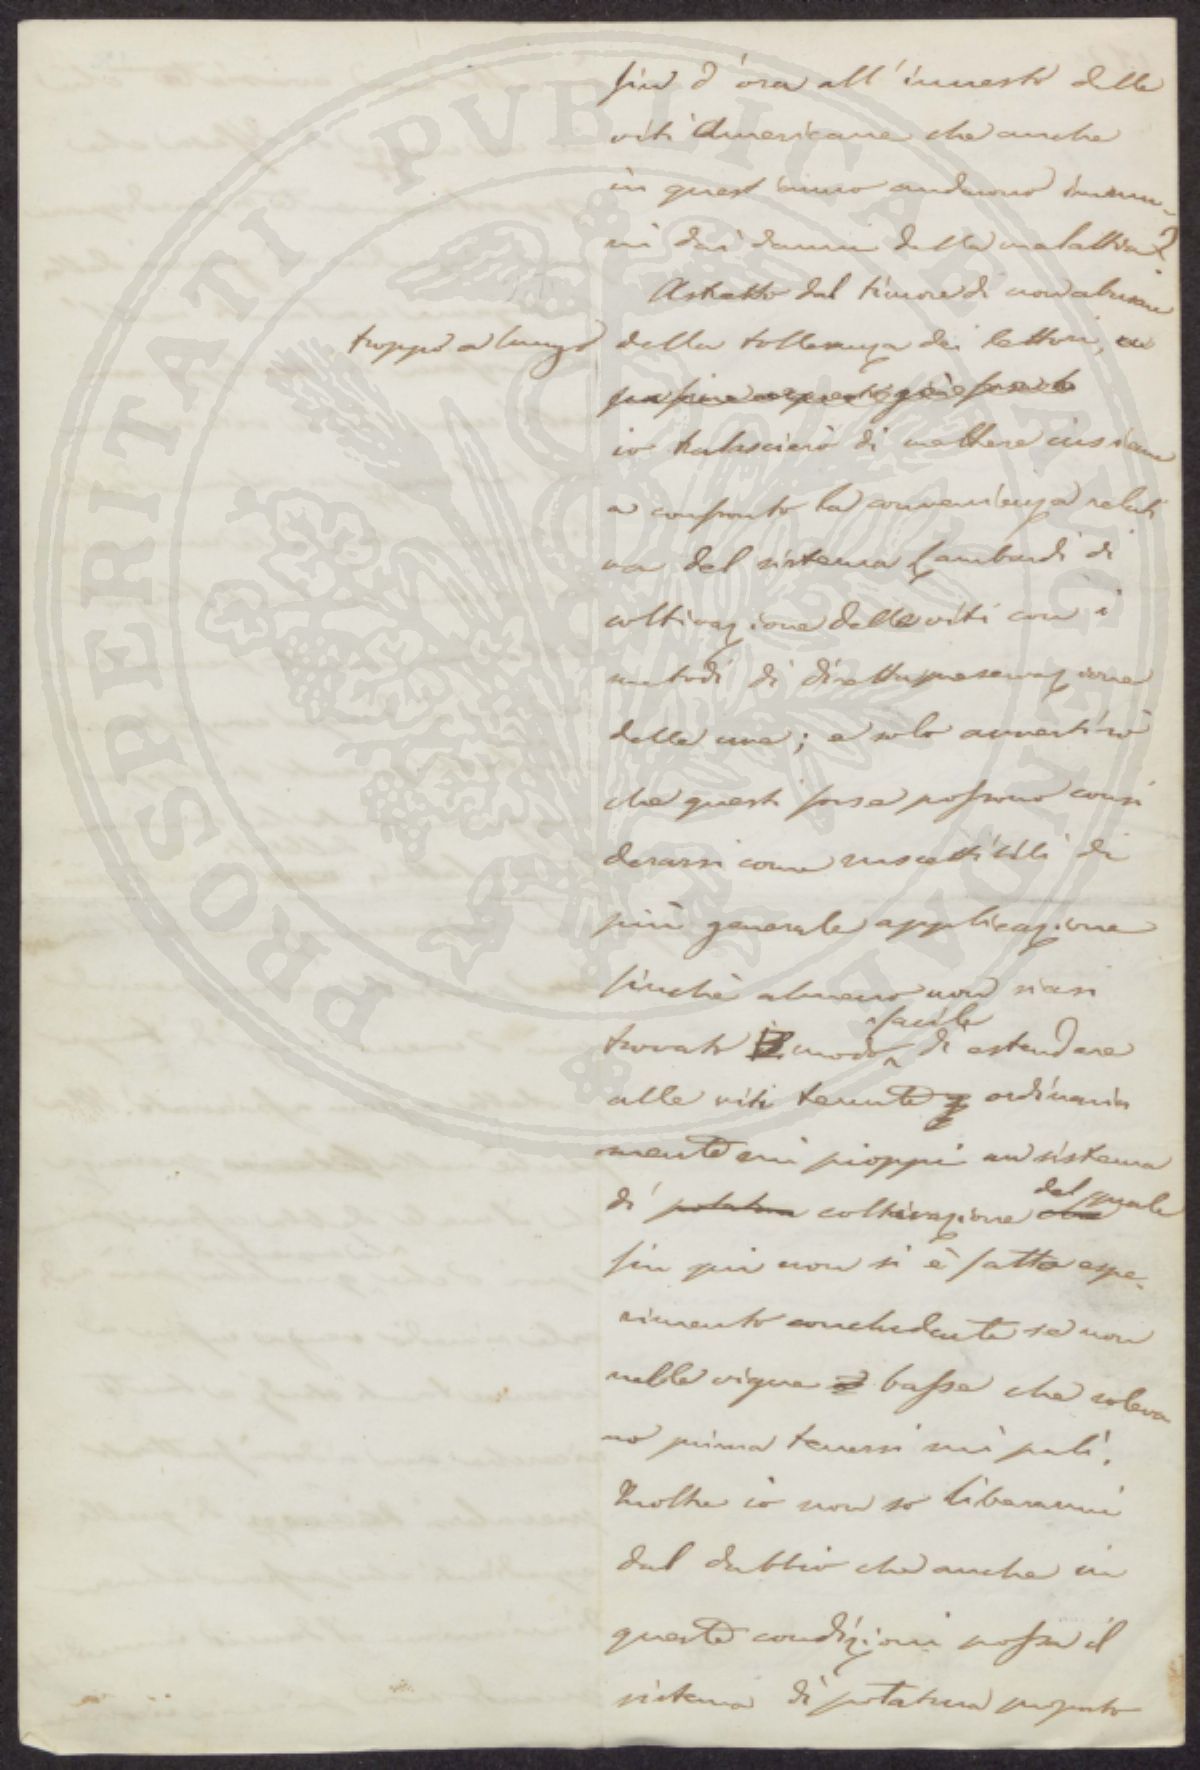 PROSPERITATI PUBLICAE AUGENDAE
fin d'ora all'innesto delle
viti Americane che anche
in quest'anno andarono immu-
ni dai danni della malattia?
Astretto dal timore di non abusare
troppo a lungo della tolleranza dei lettori,
io tralascierò di mettere insieme
a confronto la convenienza relati
va del sistema Lambardi di
coltivazione delle viti con i
metodi di diretta preservazione
delle uve; e solo avvertirò
che questi forse possono consi
derarsi come suscettibili di
più generale applicazione
finchè almeno non siasi
trovato il modo facile di estendere
alle viti tenute ordinaria
mente sui pioppi un sistema
di potatura coltivazione del quale
fin qui non si è fatto espe-
rimento concludente se non
nelle vigne basse che soleva
no prima tenersi sui pali.
Inoltre io non so liberarmi
dal dubbio che anche in
queste condizioni possa il
sistema di potatura proposto